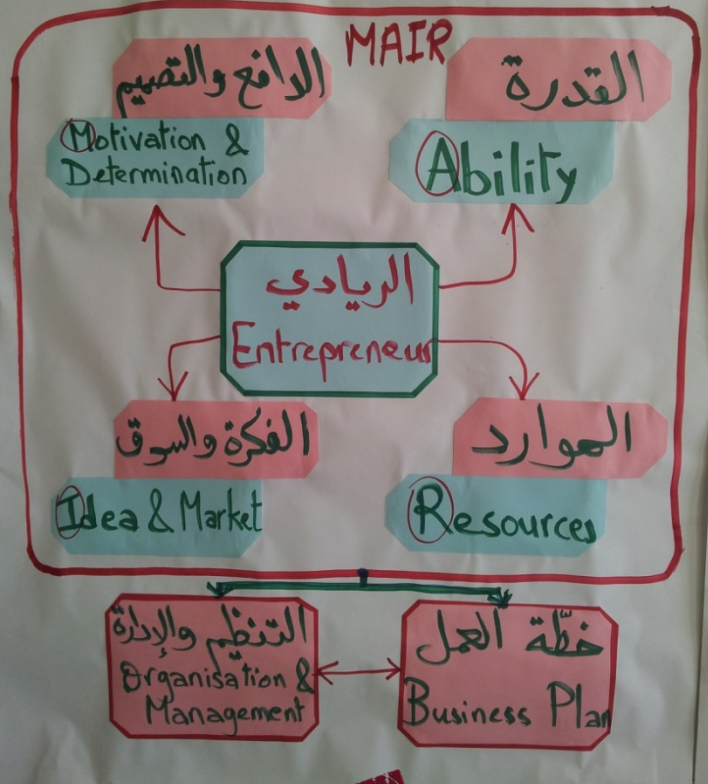 MAIR
الدافع والتصميم
Motivation &
Determination
القدرة
Ability
الريادي
Entrepreneur
الفكرة والسوق
Idea & Market
الموارد
Resources
التنظيم والإدارة
Organisation &
Management
خطّة العمل
Business Plan